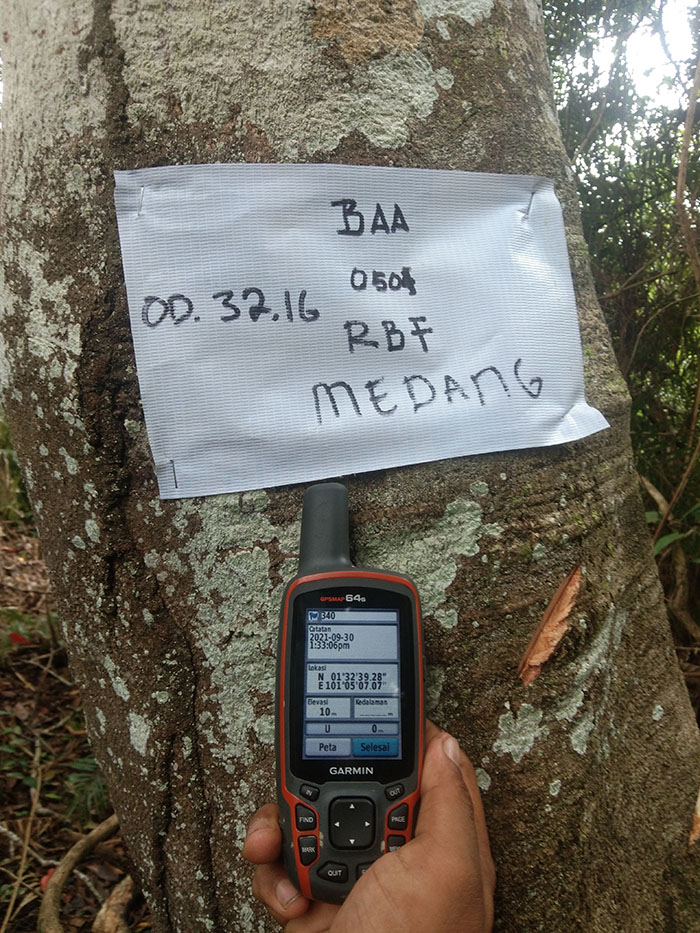 BAA
0504
OD. 32.16
RBF
MEDANG
GPSMAP 64s
340
Catatan
2021-09-30
1:33:06pm
Lokasi
N 01°32'39.28"
E 101°05'07.07"
Elevasi Kedalaman
10 m
U 0 m
Peta Selesai
GARMIN
IN OUT
FIND PAGE
MARK
QUIT